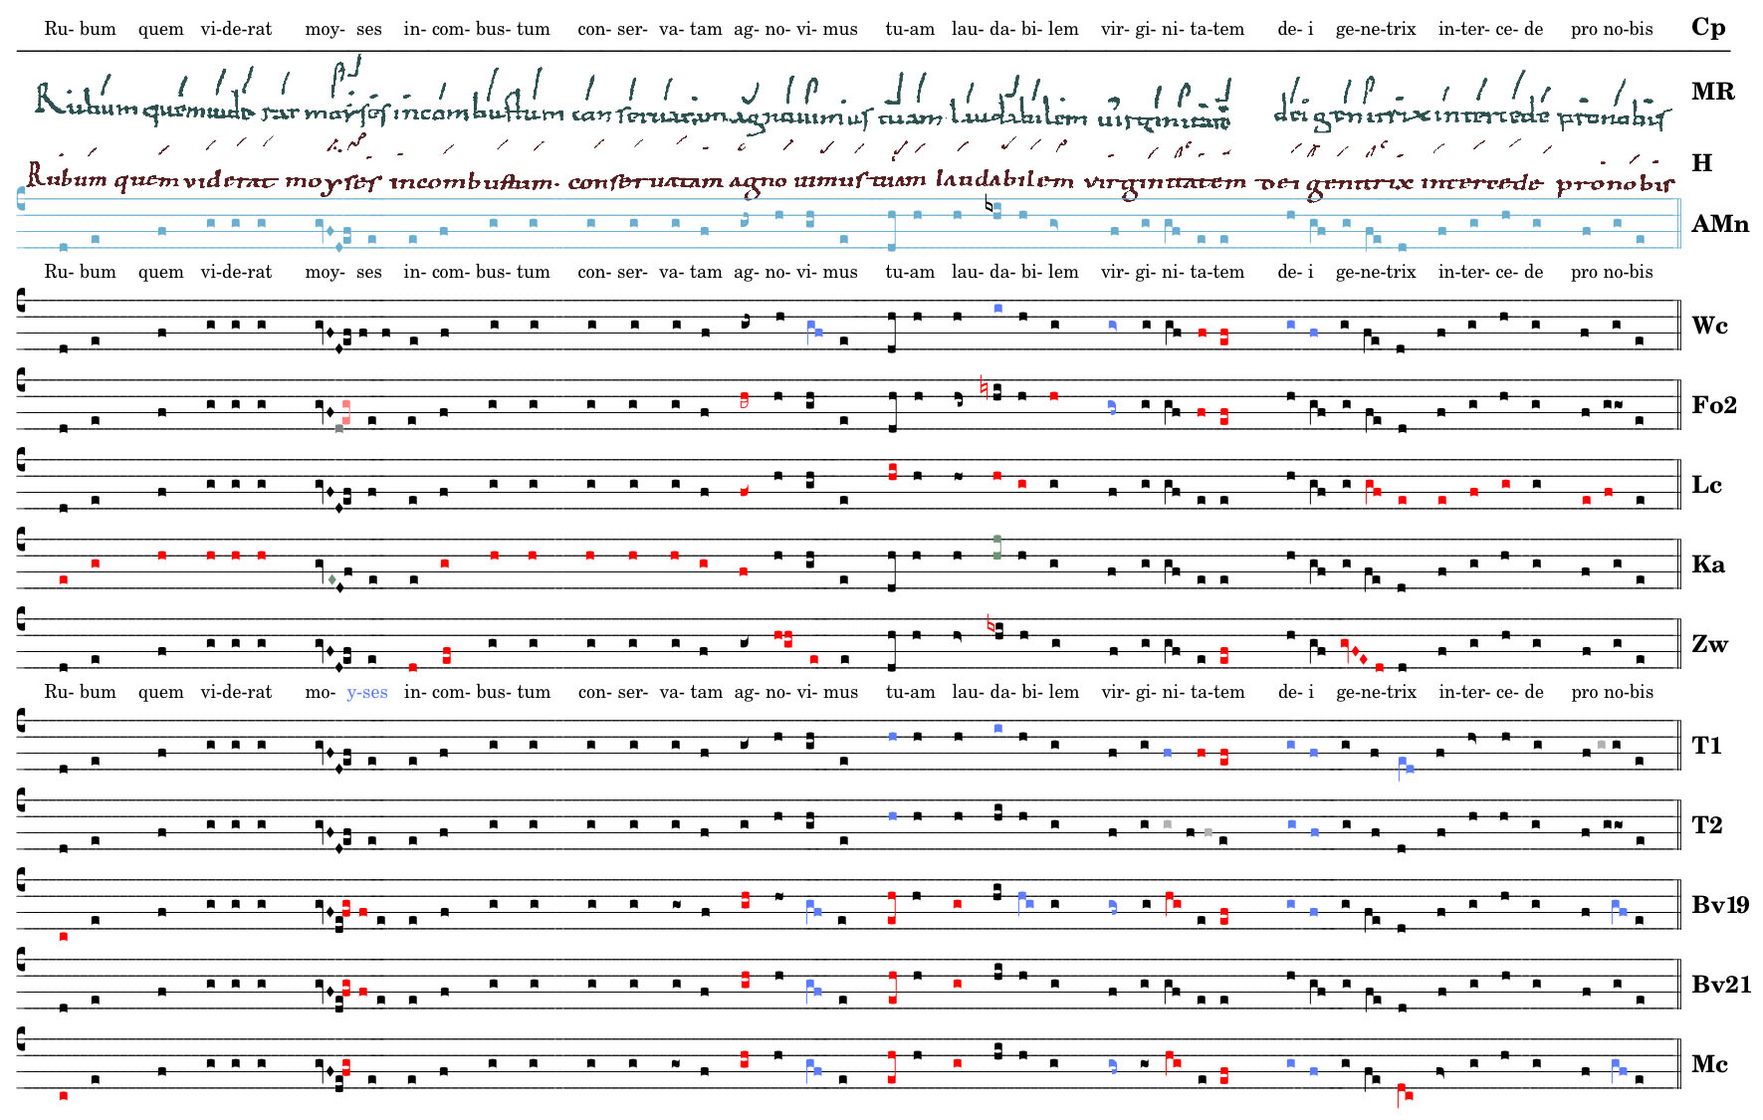 Ru- bum quem vi-de-rat moy- ses in- com- bus- tum con- ser- va- tam ag- no- vi- mus tu-am lau- da- bi- lem vir- gi- ni- ta-tem de- i ge-ne-trix in-ter- ce- de pro no-bis Cp
Rubum quem uiderat moyses incombustum conseruatam agnouimus tuam laudabilem uirginitatem dei genitrix intercede pro nobis MR
Rubum quem viderat moyses incombustum. conseruatam agno uimus tuam laudabilem virginitatem dei genitrix intercede pronobis H
AMn
Ru- bum quem vi-de-rat moy- ses in- com- bus- tum con- ser- va- tam ag- no- vi- mus tu-am lau- da- bi- lem vir- gi- ni- ta-tem de- i ge-ne-trix in-ter- ce- de pro no-bis
Wc
Fo2
Lc
Ka
Zw
Ru- bum quem vi-de-rat mo- y-ses in- com- bus- tum con- ser- va- tam ag- no- vi- mus tu-am lau- da- bi- lem vir- gi- ni- ta-tem de- i ge-ne-trix in-ter- ce- de pro no-bis
T1
T2
Bv19
Bv21
Mc